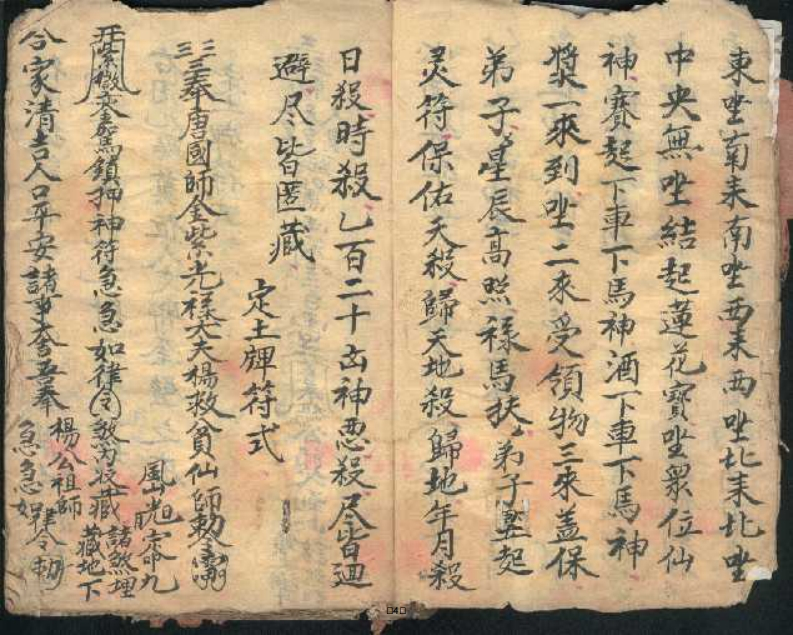 東坐南来南坐西来西坐北来北坐
中央無坐結起蓮花寶坐衆位仙
神賽起下車下馬神酒下車下馬神
漿一來到坐二來受領物三來盖保
弟子星辰高照祿馬扶弟子竪起
灵符保佑天殺歸天地殺歸地年月殺
日殺時殺乙百二十凶神惡殺尽皆迴
避尽皆匿藏
定土牌符式
三三奉唐國師金紫光祿大夫楊救貧仙師勅令
罡
定九
紫微鎖押神符急急如律令煞方没藏
諸煞埋
藏地下
合家清吉人口平安諸事大吉吾奉
楊公祖師
急急如律令勅
040